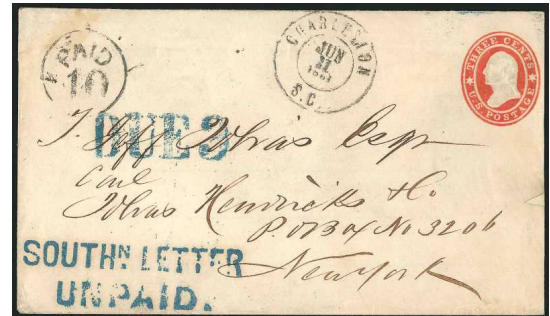 PAID
10
CHARLESTON
JUN
21
1861
S.C.
THREE CENTS
U.S. POSTAGE
DUE 3
T. Jeff Tobias Esqr
Care
Tobias Hendricks & Co
P.O Box No 3206
New York
SOUTHN LETTER
UNPAID.